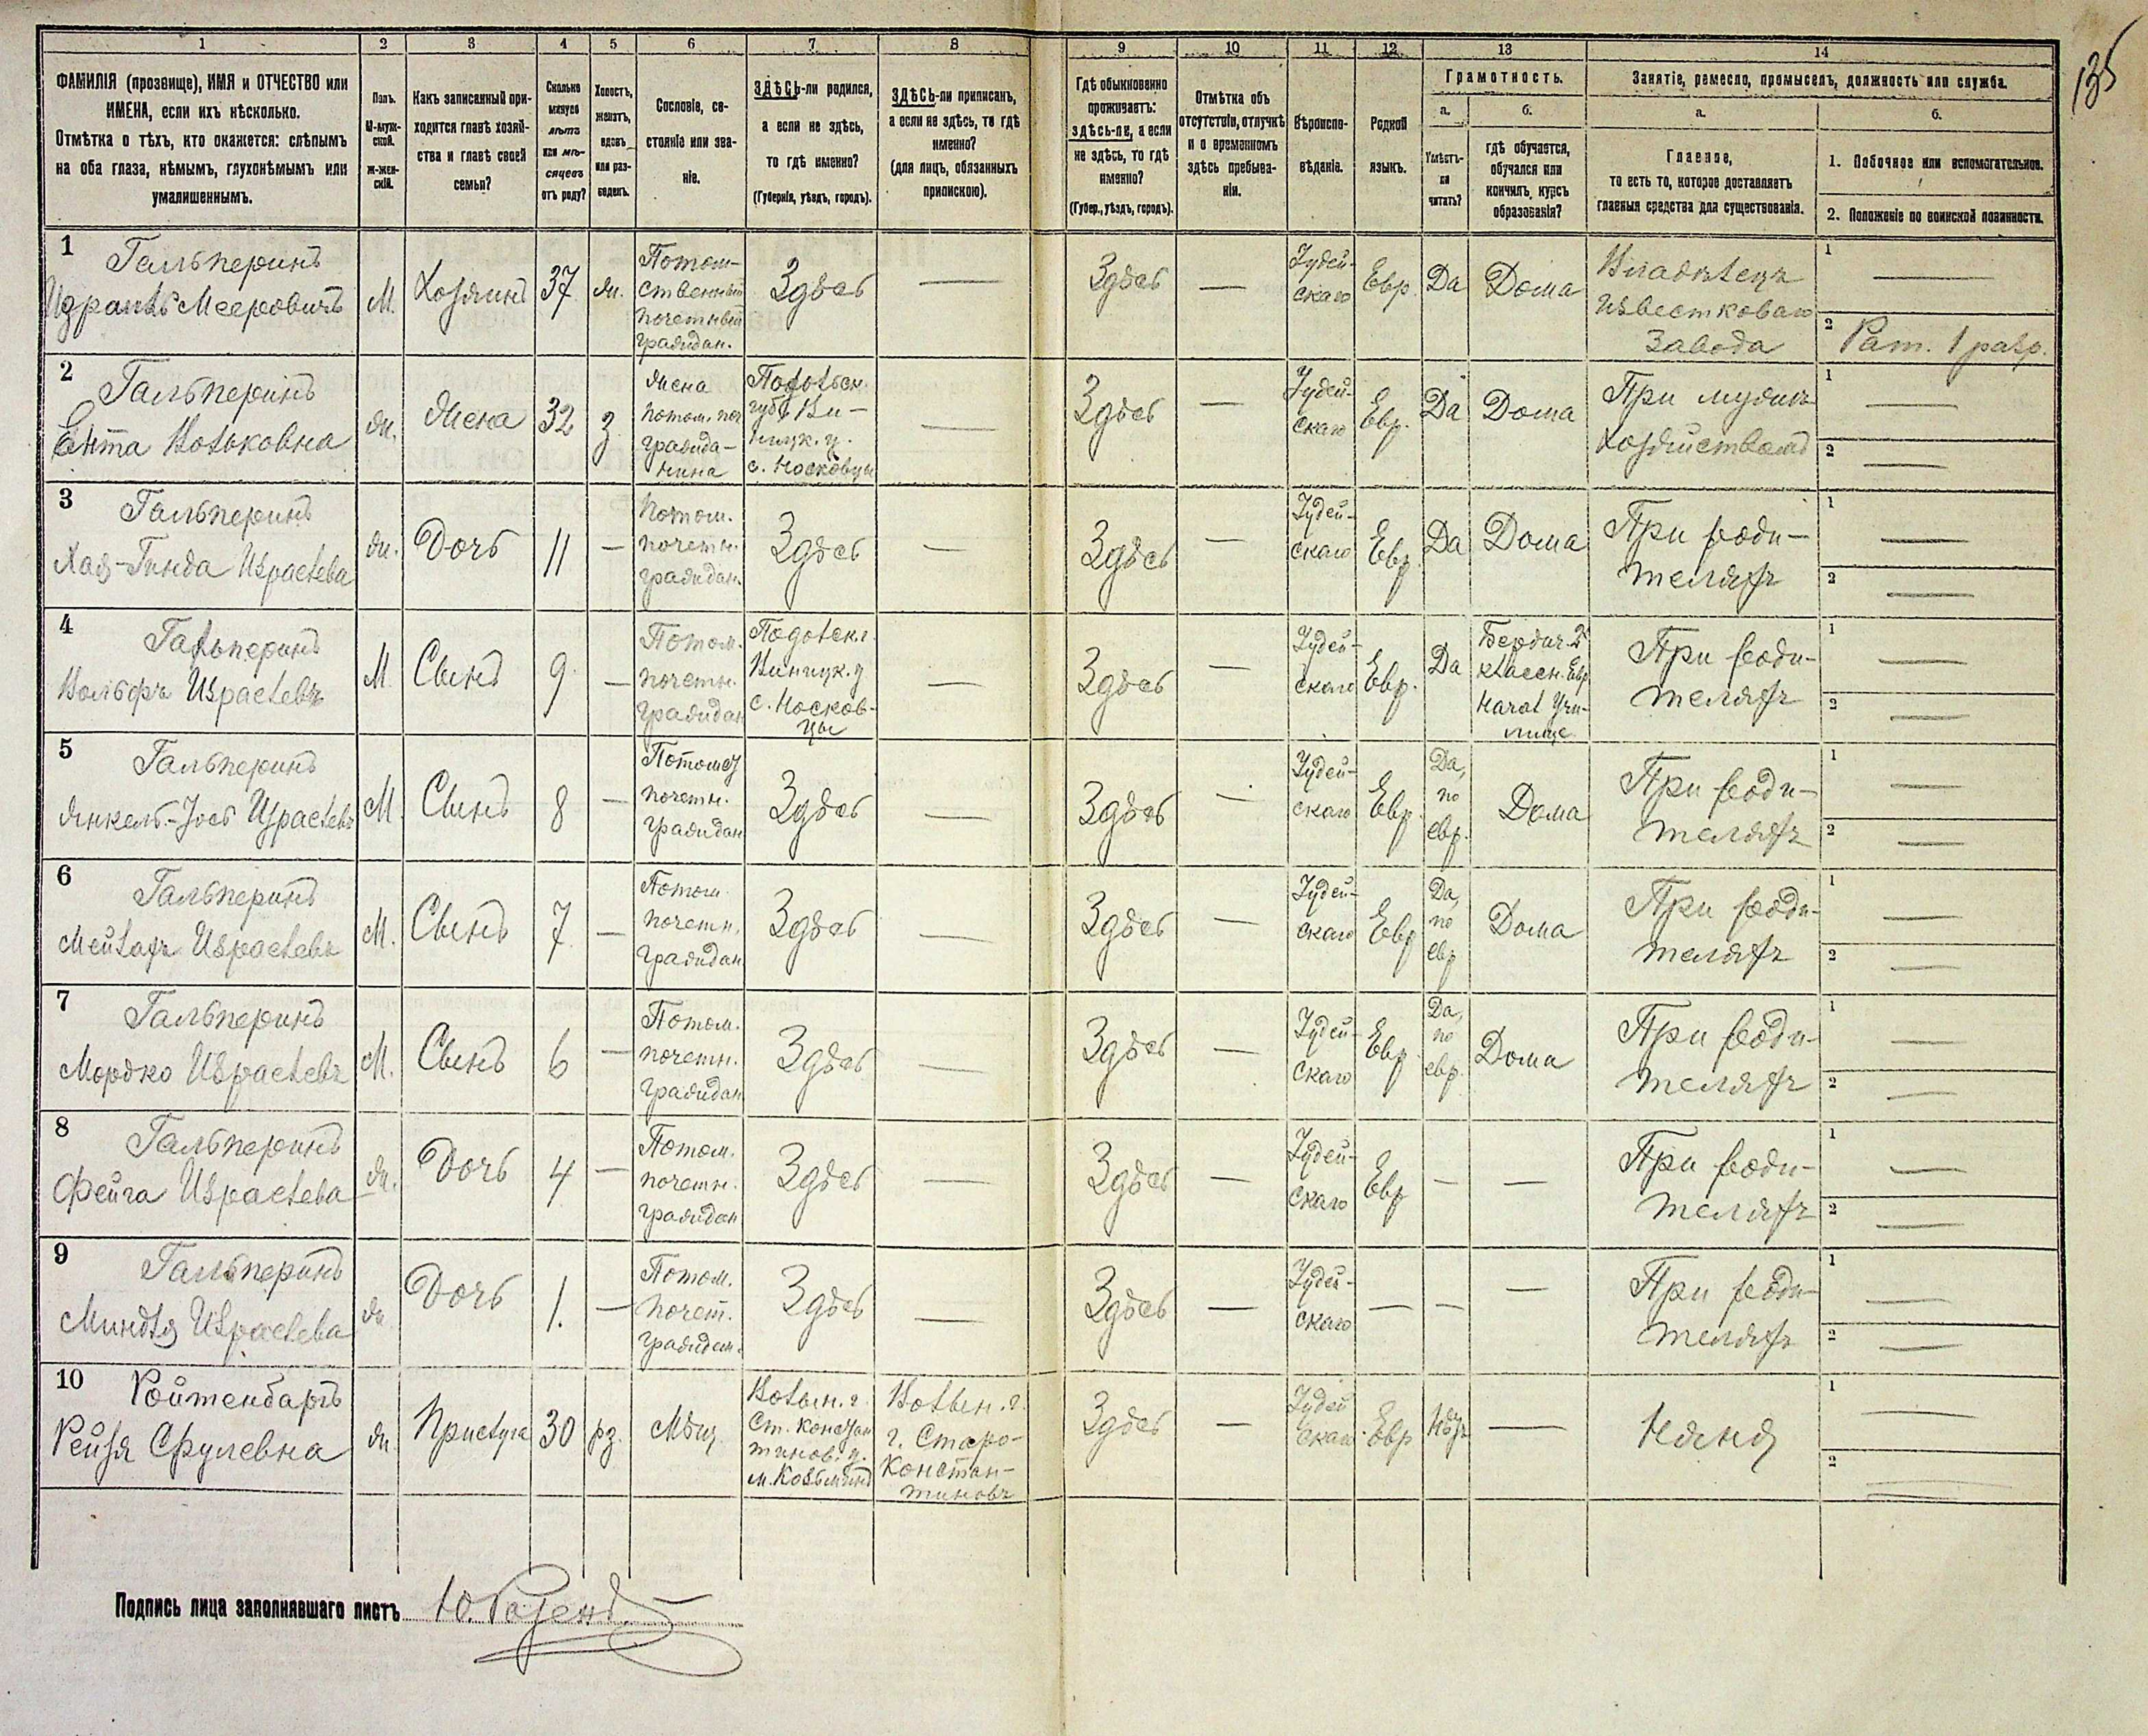 135
1 2 3 4 5 6 7 8 9 10 11 12 13 14
ФАМИЛІЯ (прозвище), ИМЯ и ОТЧЕСТВО или
ИМЕНА, если ихъ нѣсколько.
Отмѣтка о тѣхъ, кто окажется: слѣпымъ
на оба глаза, нѣмымъ, глухонѣмымъ или
умалишеннымъ.
Полъ.
М-муж-
ской.
Ж-жен-
скій.
Какъ записанный при-
ходится главѣ хозяй-
ства и главѣ своей
семьи?
Сколько
минуло
лѣтъ
или мѣ-
сяцевъ
отъ роду?
Холостъ,
женатъ,
вдовъ
или раз-
веденъ.
Сословіе, со-
стояніе или зва-
ніе.
ЗДѢСЬ-ли родился,
а если не здѣсь,
то гдѣ именно?
(Губернія, уѣздъ, городъ).
ЗДѢСЬ-ли приписанъ,
а если не здѣсь, то гдѣ
именно?
(для лицъ, обязанныхъ
припискою).
Гдѣ обыкновенно
проживаетъ:
здѣсь-ли, а если
не здѣсь, то гдѣ
именно?
(Губер., уѣздъ, городъ).
Отмѣтка объ
отсутствіи, отлучкѣ
и о временномъ
здѣсь пребыва-
ніи.
Вѣроиспо-
вѣданіе.
Родной
языкъ.
Грамотность.
а.
Умѣетъ-
ли
читать?
б.
гдѣ обучается,
обучался или
кончилъ курсъ
образованія?
Занятіе, ремесло, промыселъ, должность или служба.
а.
Главное,
то есть то, которое доставляетъ
главныя средства для существованія.
б.
1. Побочное или вспомогательное.
2. Положеніе по воинской повинности.
1
Гальперинъ
Израиль Мееровичъ
М.
Хозяинъ
37
ж.
Потом-
ственный
почетный
граждан.
Здѣсь
—
Здѣсь
—
Іудей-
скаго
Евр.
Да
Дома
Владѣлецъ
известковаго
завода
1 —
2 Рат. 1 разр.
2
Гальперинъ
Ента Вольковна
ж.
Жена
32
з.
Жена
потом. поч
гражда-
нина
Подольск.
губ. Ви-
ницк. у.
с. Носковцы
—
Здѣсь
—
Іудей-
скаго
Евр.
Да
Дома
При мужѣ
хозяйствомъ
1 —
2 —
3
Гальперинъ
Хая-Гинда Израилева
ж.
Дочь
11
—
Потом.
почетн.
граждан.
Здѣсь
—
Здѣсь
—
Іудей-
скаго
Евр.
Да
Дома
При роди-
теляхъ
1 —
2 —
4
Гальперинъ
Вольфъ Израилевъ
М
Сынъ
9
—
Потом.
почетн.
граждан
Подольск. г.
Виницк. у
с. Носков-
цы
—
Здѣсь
—
Іудей-
скаго
Евр.
Да
Бердич. 2х
классн. Евр
Начал Учи-
лище
При роди-
теляхъ
1 —
2 —
5
Гальперинъ
Янкель-Іось Израилевъ
М.
Сынъ
8
—
почетн.
граждан
Здѣсь
—
Здѣсь
—
Іудей-
скаго
Евр.
Да,
по
евр.
Дома
При роди-
теляхъ
1 —
2 —
6
Гальперинъ
Мейлахъ Израилевъ
М.
Сынъ
7
—
Потом
почетн.
граждан
Здѣсь
—
Здѣсь
—
Іудей-
скаго
Евр
Да,
по
евр
Дома
При роди-
теляхъ
1 —
2 —
7
Гальперинъ
Мордко Израилевъ
М.
Сынъ
6
—
Потом.
почетн.
граждан
Здѣсь
—
Здѣсь
—
Іудей-
скаго
Евр.
Да,
по
евр.
Дома
При роди-
теляхъ
1 —
2 —
8
Гальперинъ
Фейга Израилева
ж.
Дочь
4
—
Потом.
почетн.
граждан
Здѣсь
—
Здѣсь
—
Іудей-
скаго
Евр
—
—
При роди-
теляхъ
1 —
2 —
9
Гальперинъ
Миндля Израилева
ж
Дочь
1.
—
Потом.
почет.
граждан.
Здѣсь
—
Здѣсь
—
Іудей-
скаго
—
—
—
При роди-
теляхъ
1 —
2 —
10
Ройтенбаргъ
Рейзя Срулевна
ж.
Прислуга
30
рз.
Мѣщ
Волын. г
Ст. Констан
тинов. у.
м. Козьминъ
Волын. г.
г. Старо-
Констан-
тиновъ
Здѣсь
—
Іудей
скаго
Евр
Нѣтъ
—
Няня
1 —
2 —
Подпись лица заполнявшаго листъ